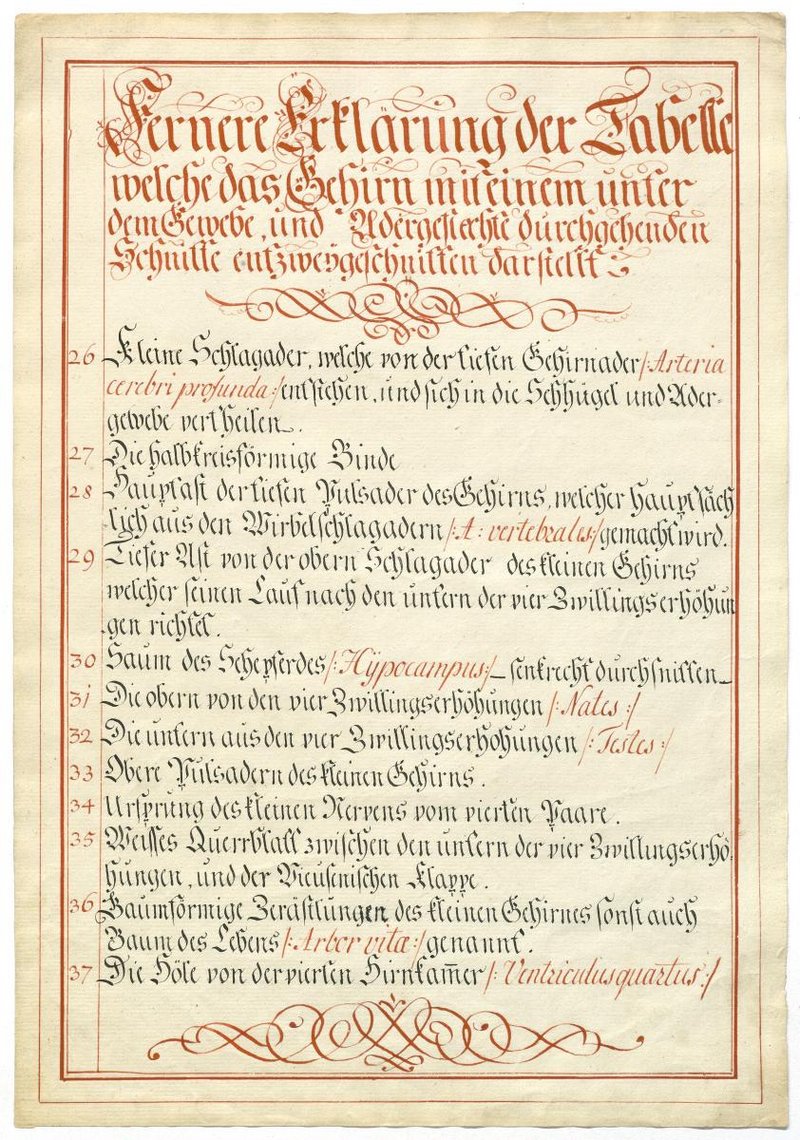 Fernere Erklärung der Tabelle
welche das Gehirn mit einem unter
dem Gewebe, und Adergeflechte durchgehenden
Schnitte entzweygeschnitten darstellt
26 Kleine Schlagader, welche von der tiefen Gehirnader /: Arteria
cerebri profunda :/ entstehen, und sich in die Sehhügel und Ader-
gewebe vertheilen.
27 Die halbkreisförmige Binde
28 Hauptast der tiefen Pulsader des Gehirns, welcher hauptsäch
lich aus den Wirbelschlagadern /: A: vertebralis :/ gemacht wird.
29 Tiefer Ast von der obern Schlagader des kleinen Gehirns
welcher seinen Lauf nach den untern der vier Zwillingserhöhun
gen richtet.
30 Saum des Seepferdes /: Hÿpocampus :/ senkrecht durchsnitten
31 Die obern von den vier Zwillingserhöhungen /: Nates :/
32 Die untern aus den vier Zwillingserhohungen /: Testes :/
33 Obere Pulsadern des kleinen Gehirns.
34 Ursprung des kleinen Nervens vom vierten Paare.
35 Weisses Querrblatt zwischen den untern der vier Zwillingserhö:
hungen, und der Vieusenischen Klappe.
36 Baumförmige Zerästlungen des kleinen Gehirnes sonst auch
Baum des Lebens /: Arbor vitæ :/ genannt.
37 Die Höle von der vierten Hirnkam̄er /: Ventriculus quartus :/